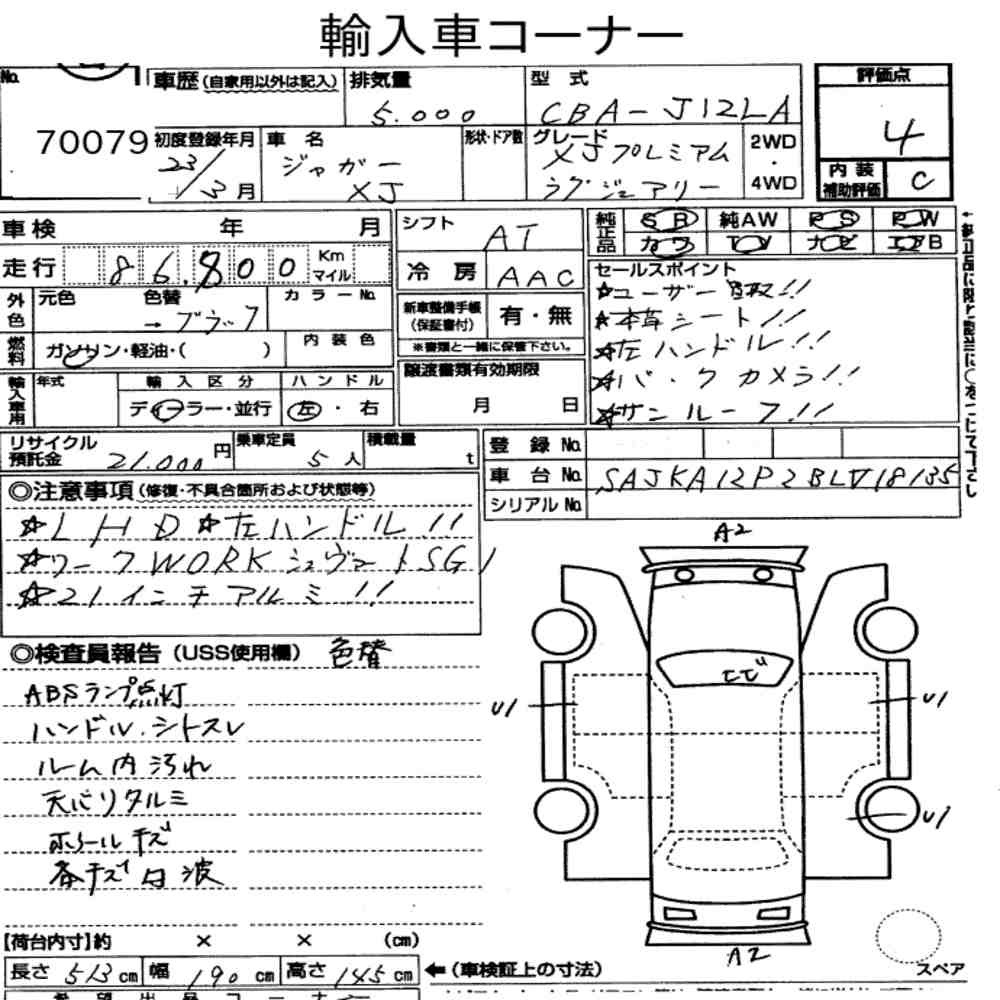 輸入車コーナー
No.
70079
車歴(自家用以外は記入)
排気量
5.000
型式
CBA-J12LA
評価点
4
初度登録年月
23/3月
車名
ジャガー
XJ
形状・ドア数
グレード
XJプレミアム
ラグジュアリー
2WD
・
4WD
内装
補助評価
C
車検 年 月
走行 86.800 Km
マイル
シフト
AT
冷房
AAC
純正品
SR 純AW PS PW
カワ TV ナビ エアB
外色
元色 色替 カラーNo.
→ブラック
燃料
ガソリン・軽油・( )
内装色
新車整備手帳
(保証書付)
有・無
※書類と一緒に保管下さい。
セールスポイント
☆ユーザー買取!!
☆本革シート!!
☆左ハンドル!!
☆バックカメラ!!
☆サンルーフ!!
輸入車用
年式
輸入区分
ディーラー・並行
ハンドル
左・右
譲渡書類有効期限
月 日
リサイクル
預託金
21.000円
乗車定員
5人
積載量
t
登録No.
車台No.
SAJKA12P2BLV18135
シリアルNo.
◎注意事項(修復・不具合箇所および状態等)
☆LHD☆左ハンドル!!
☆ワークWORKシュヴァートSG1
☆21インチアルミ!!
◎検査員報告(USS使用欄) 色替
ABSランプ点灯
ハンドル.シトスレ
ルーム内汚れ
天バリタルミ
ホイールキズ
各キズ凹波
A2
トビ
U1
U1
U1
A2
スペア
【荷台内寸】約 × × (cm)
長さ 513cm 幅 190cm 高さ 145cm
←(車検証上の寸法)